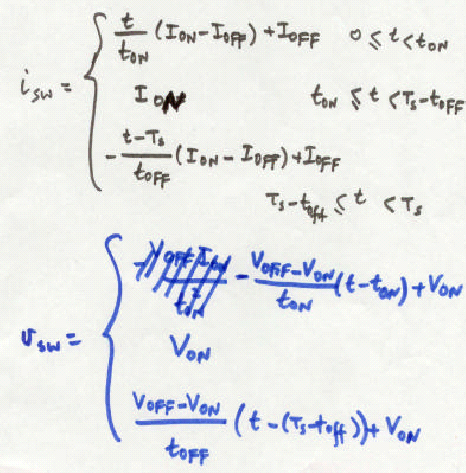 i_SW = { t/t_ON (I_ON - I_OFF) + I_OFF    0 ≤ t < t_ON
I_ON    t_ON ≤ t < T_S - t_OFF
- (t - T_S)/t_OFF (I_ON - I_OFF) + I_OFF
T_S - t_off ≤ t < T_S
v_SW = { - (V_OFF - V_ON)/t_ON (t - t_ON) + V_ON
V_ON
(V_OFF - V_ON)/t_OFF (t - (T_S - t_off)) + V_ON